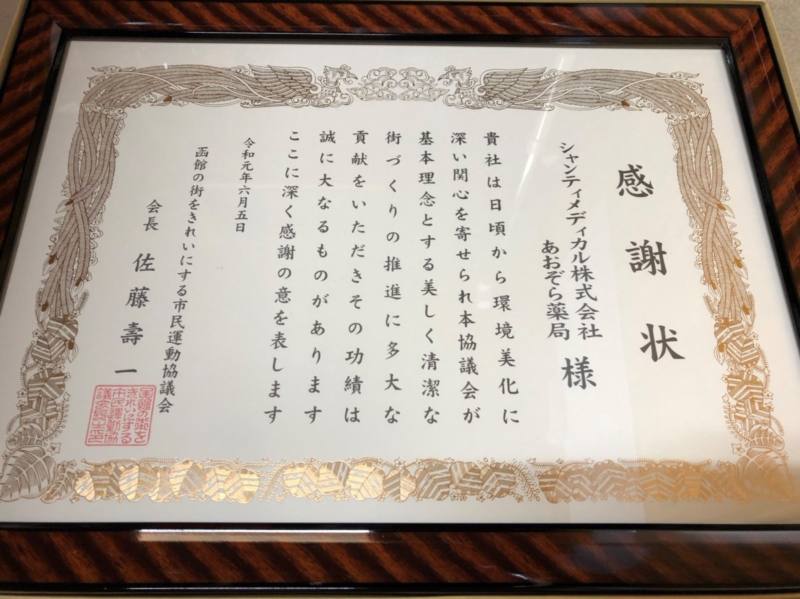 感謝状
シャンティメディカル株式会社
あおぞら薬局
様
貴社は日頃から環境美化に
深い関心を寄せられ本協議会が
基本理念とする美しく清潔な
街づくりの推進に多大な
貢献をいただきその功績は
誠に大なるものがあります
ここに深く感謝の意を表します
令和元年六月五日
函館の街をきれいにする市民運動協議会
会長 佐藤壽一